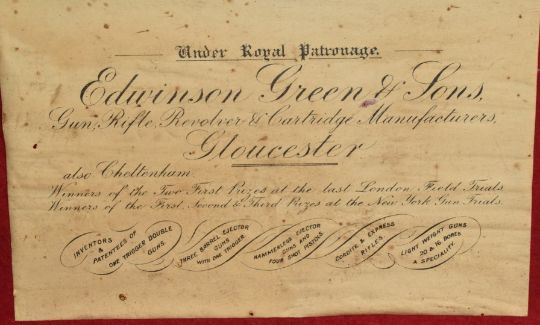 Under Royal Patronage.
Edwinson Green & Sons,
Gun, Rifle, Revolver & Cartridge Manufacturers,
Gloucester
also Cheltenham.
Winners of the Two First Prizes at the last London Field Trials
Winners of the First, Second & Third Prizes at the New York Gun Trials.
INVENTORS
&
PATENTEES OF
ONE TRIGGER DOUBLE
GUNS.
THREE BARREL EJECTOR
GUNS
WITH ONE TRIGGER.
HAMMERLESS EJECTOR
GUNS AND
FOUR SHOT PISTOLS.
CORDITE & EXPRESS
RIFLES.
LIGHT WEIGHT GUNS
20 & 16 BORES
A SPECIALITY.